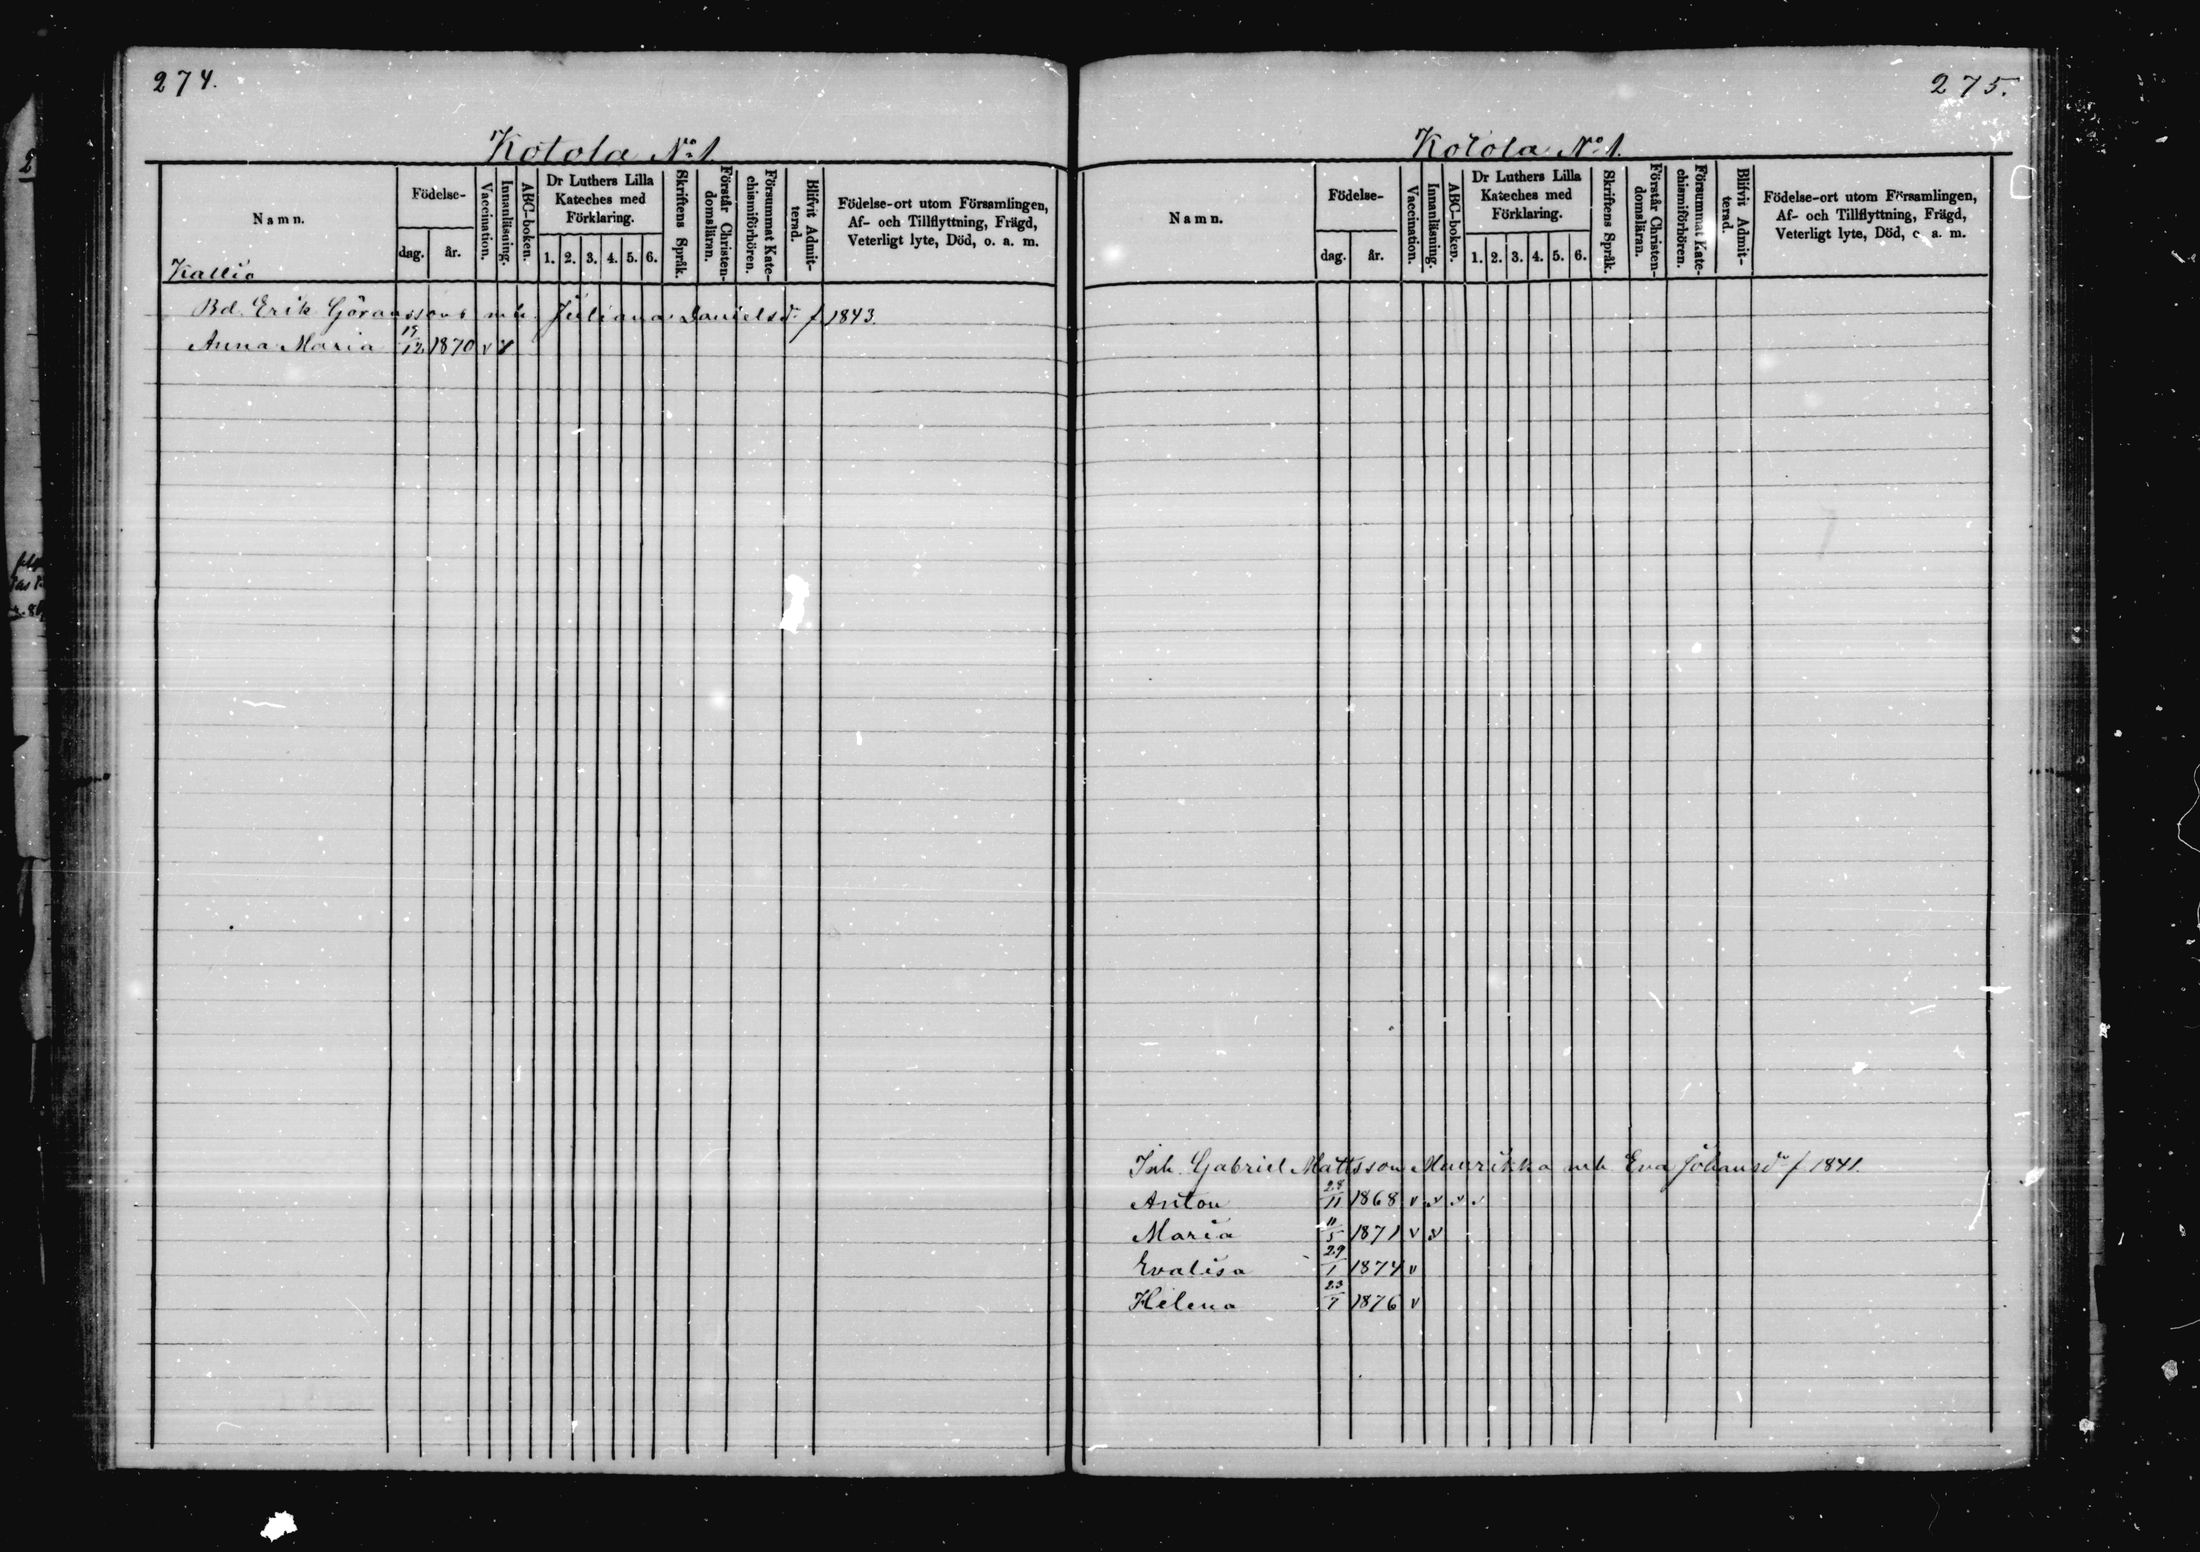 274.
Kotola No 1.
Namn.
Födelse-
dag.
år.
Vaccination.
Innanläsning.
ABC-boken.
Dr Luthers Lilla
Kateches med
Förklaring.
1. 2. 3. 4. 5. 6.
Skriftens Språk.
Förstår Christen-
domsläran.
Försummat Kate-
chismiförhören.
Blifvit Admit-
terad.
Födelse-ort utom Församlingen,
Af- och Tillflyttning, Frägd,
Veterligt lyte, Död, o. a. m.
Kallio
Bd. Erik Göranssons mh. Juliana Danielsdr f 1843.
Anna Maria 19/12 1870 v
275.
Kotola No 1.
Namn.
Födelse-
dag.
år.
Vaccination.
Innanläsning.
ABC-boken.
Dr Luthers Lilla
Kateches med
Förklaring.
1. 2. 3. 4. 5. 6.
Skriftens Språk.
Förstår Christen-
domsläran.
Försummat Kate-
chismiförhören.
Blifvit Admit-
terad.
Födelse-ort utom Församlingen,
Af- och Tillflyttning, Frägd,
Veterligt lyte, Död, o. a. m.
Inh. Gabriel Mattsson Muurikka mh. Eva Johansdr f 1841.
Anton 28/11 1868 v v v v
Maria 11/5 1871 v v
Evalisa 29/1 1874 v
Helena 23/7 1876 v